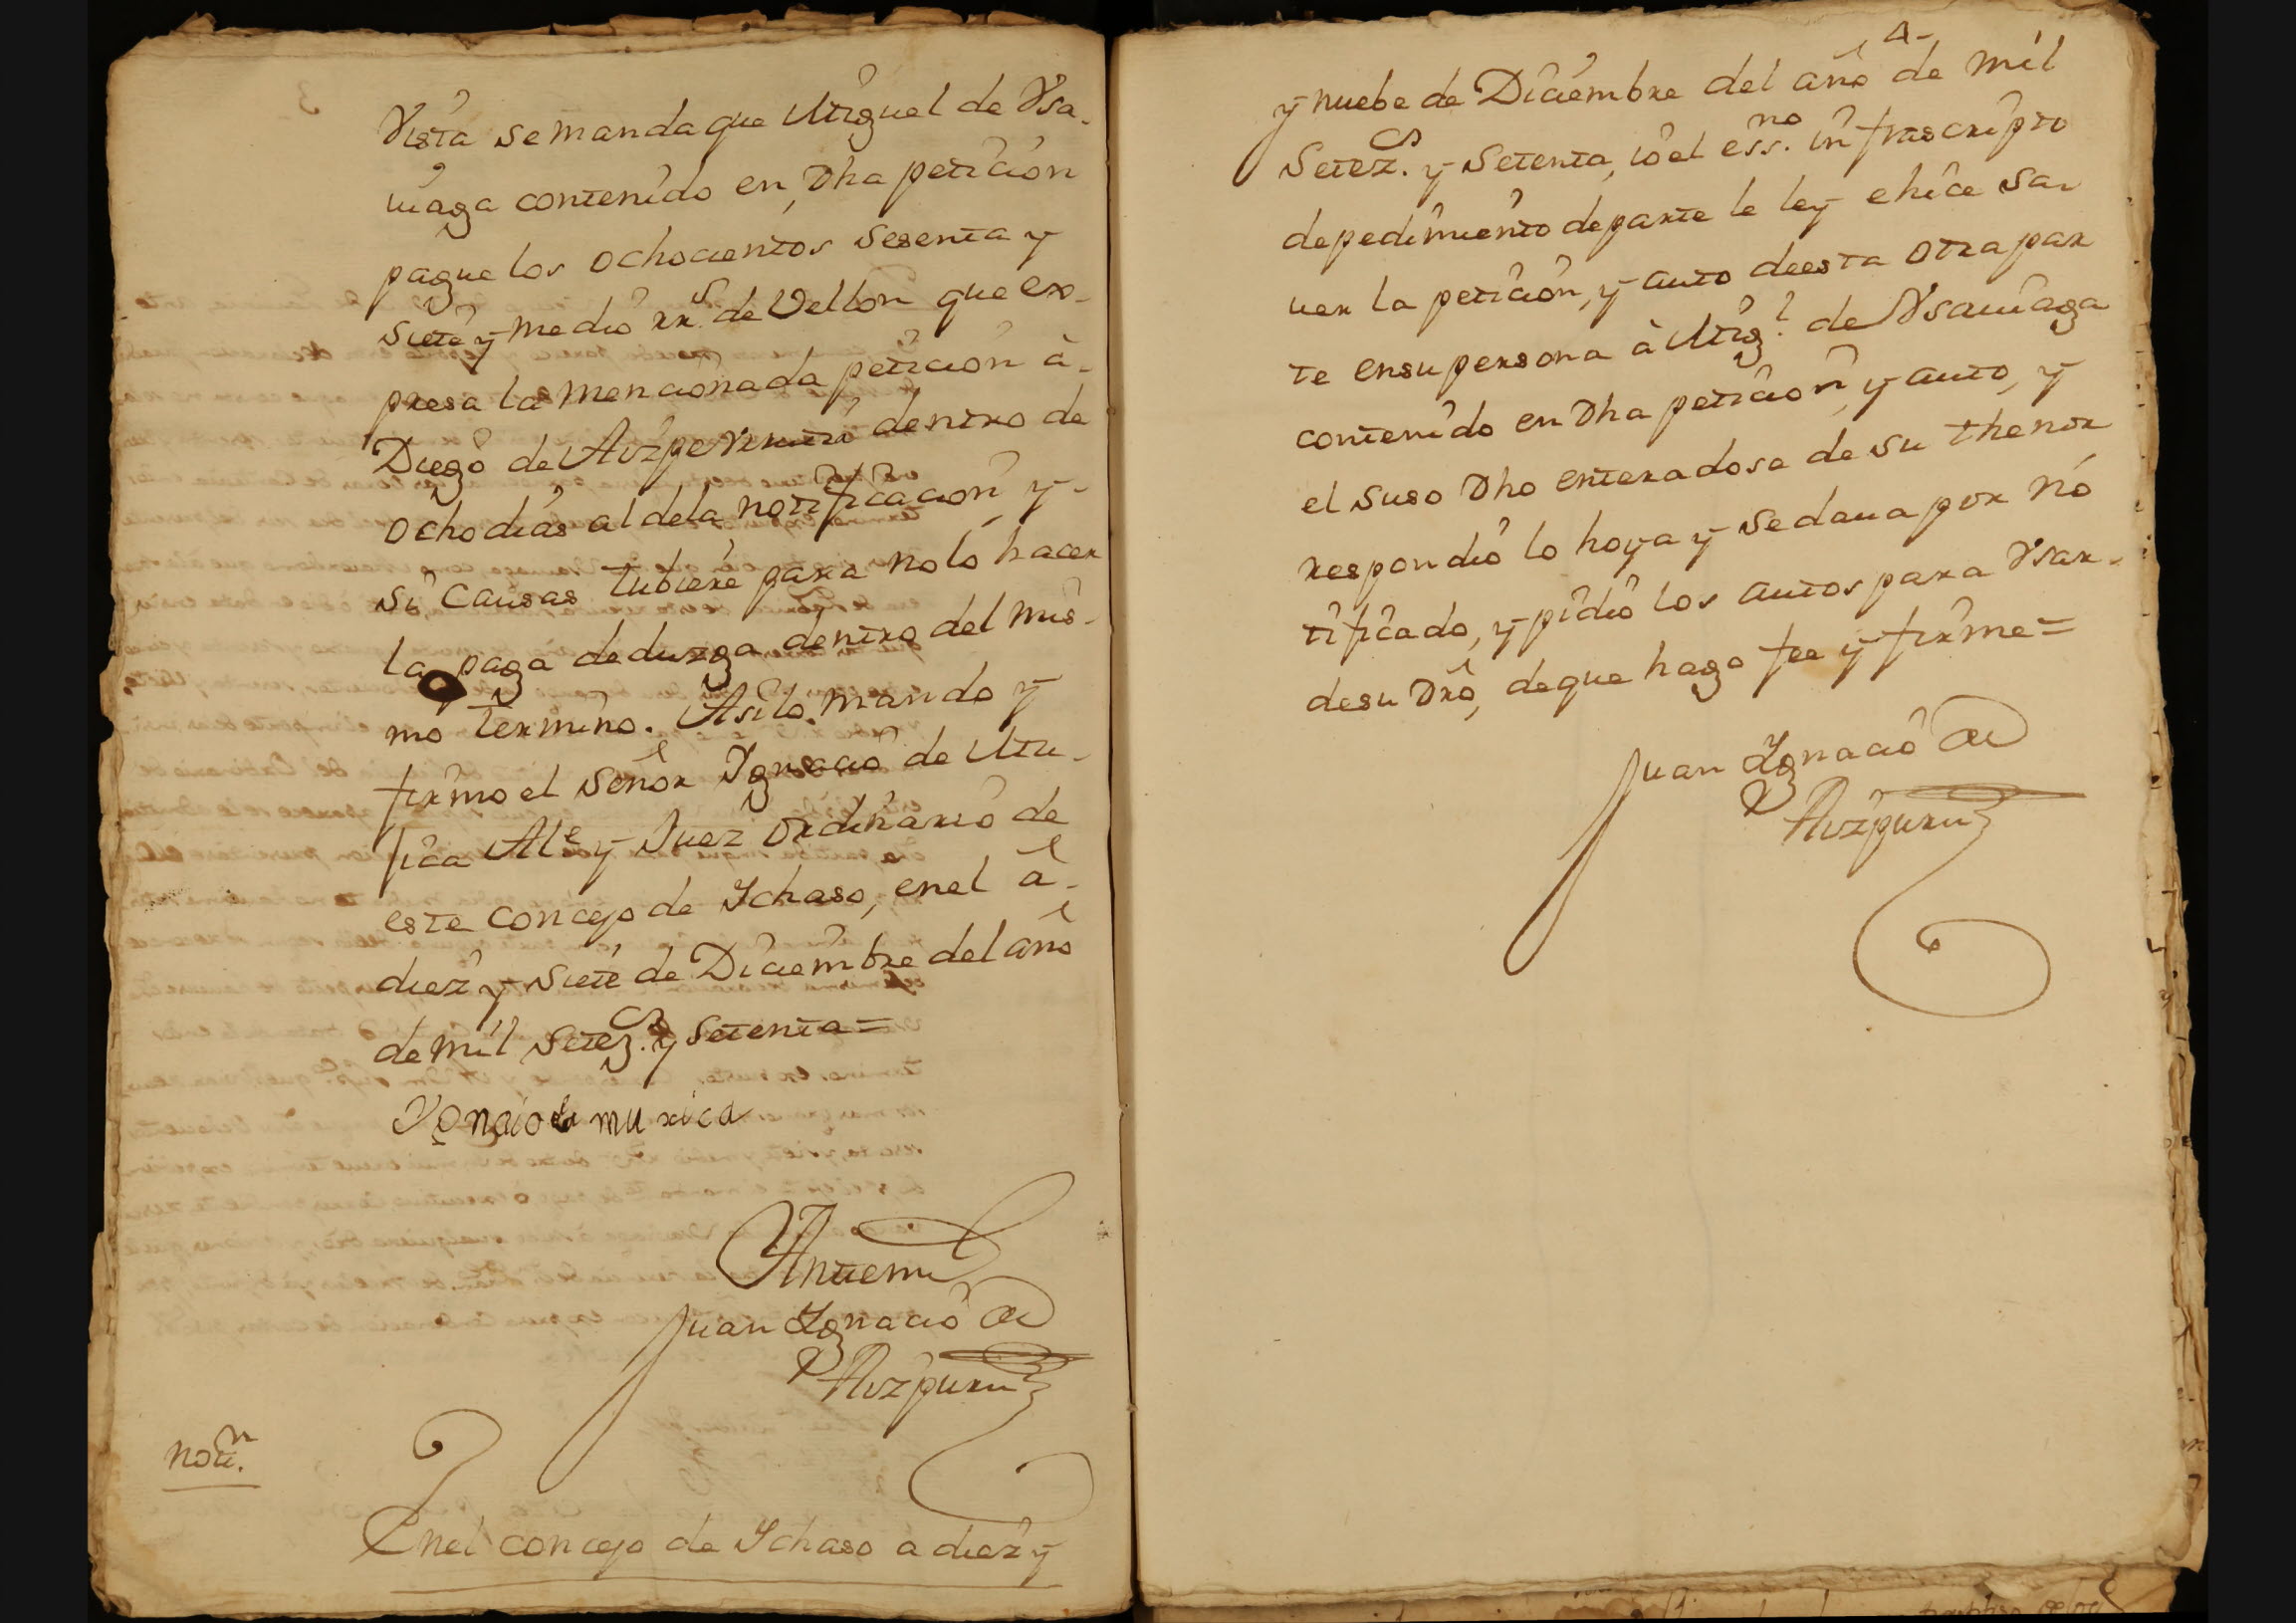 Vista se manda que Miguel de Ysa-
uiaga contenido en Dha peticion
pague los ochocientos sesenta y
siete y medio rr.s de Vellon que ex-
presa la mencionada peticion à
Diego de Aizpe dentro de
ocho dias al dela notificacion y
si causas tubiere para no lo hacer
la paga deduzga dentro del mis-
mo termino. Asilo mando y
firmo el señor Ygnacio de Mu-
jica Al.e y Juez ordinario de
este concejo de Ichaso, enel à
diez y siete de Diciembre del año
de mil setez.s y setenta =
Ygnacio de muxica
Antemi
Juan Ignacio de
Aizpuru
notti.n
Enel concejo de Ichaso a diez y
4
y nuebe de Diciembre del año de mil
setez.s y setenta, io el ess.no infrascripto
de pedimiento de parte le ley e hice sa-
uer la peticion, y auto deesta otra par
te ensu persona à Mig.l de Ysauiaga
contenido en Dha peticion, y auto, y
el suso Dho enteradose de su thenor
respondio lo hoya y se daua por no
tificado, y pidio los autos para Vsar
desu Dro, deque hago fee y firme =
Juan Ignacio de
Aizpuru